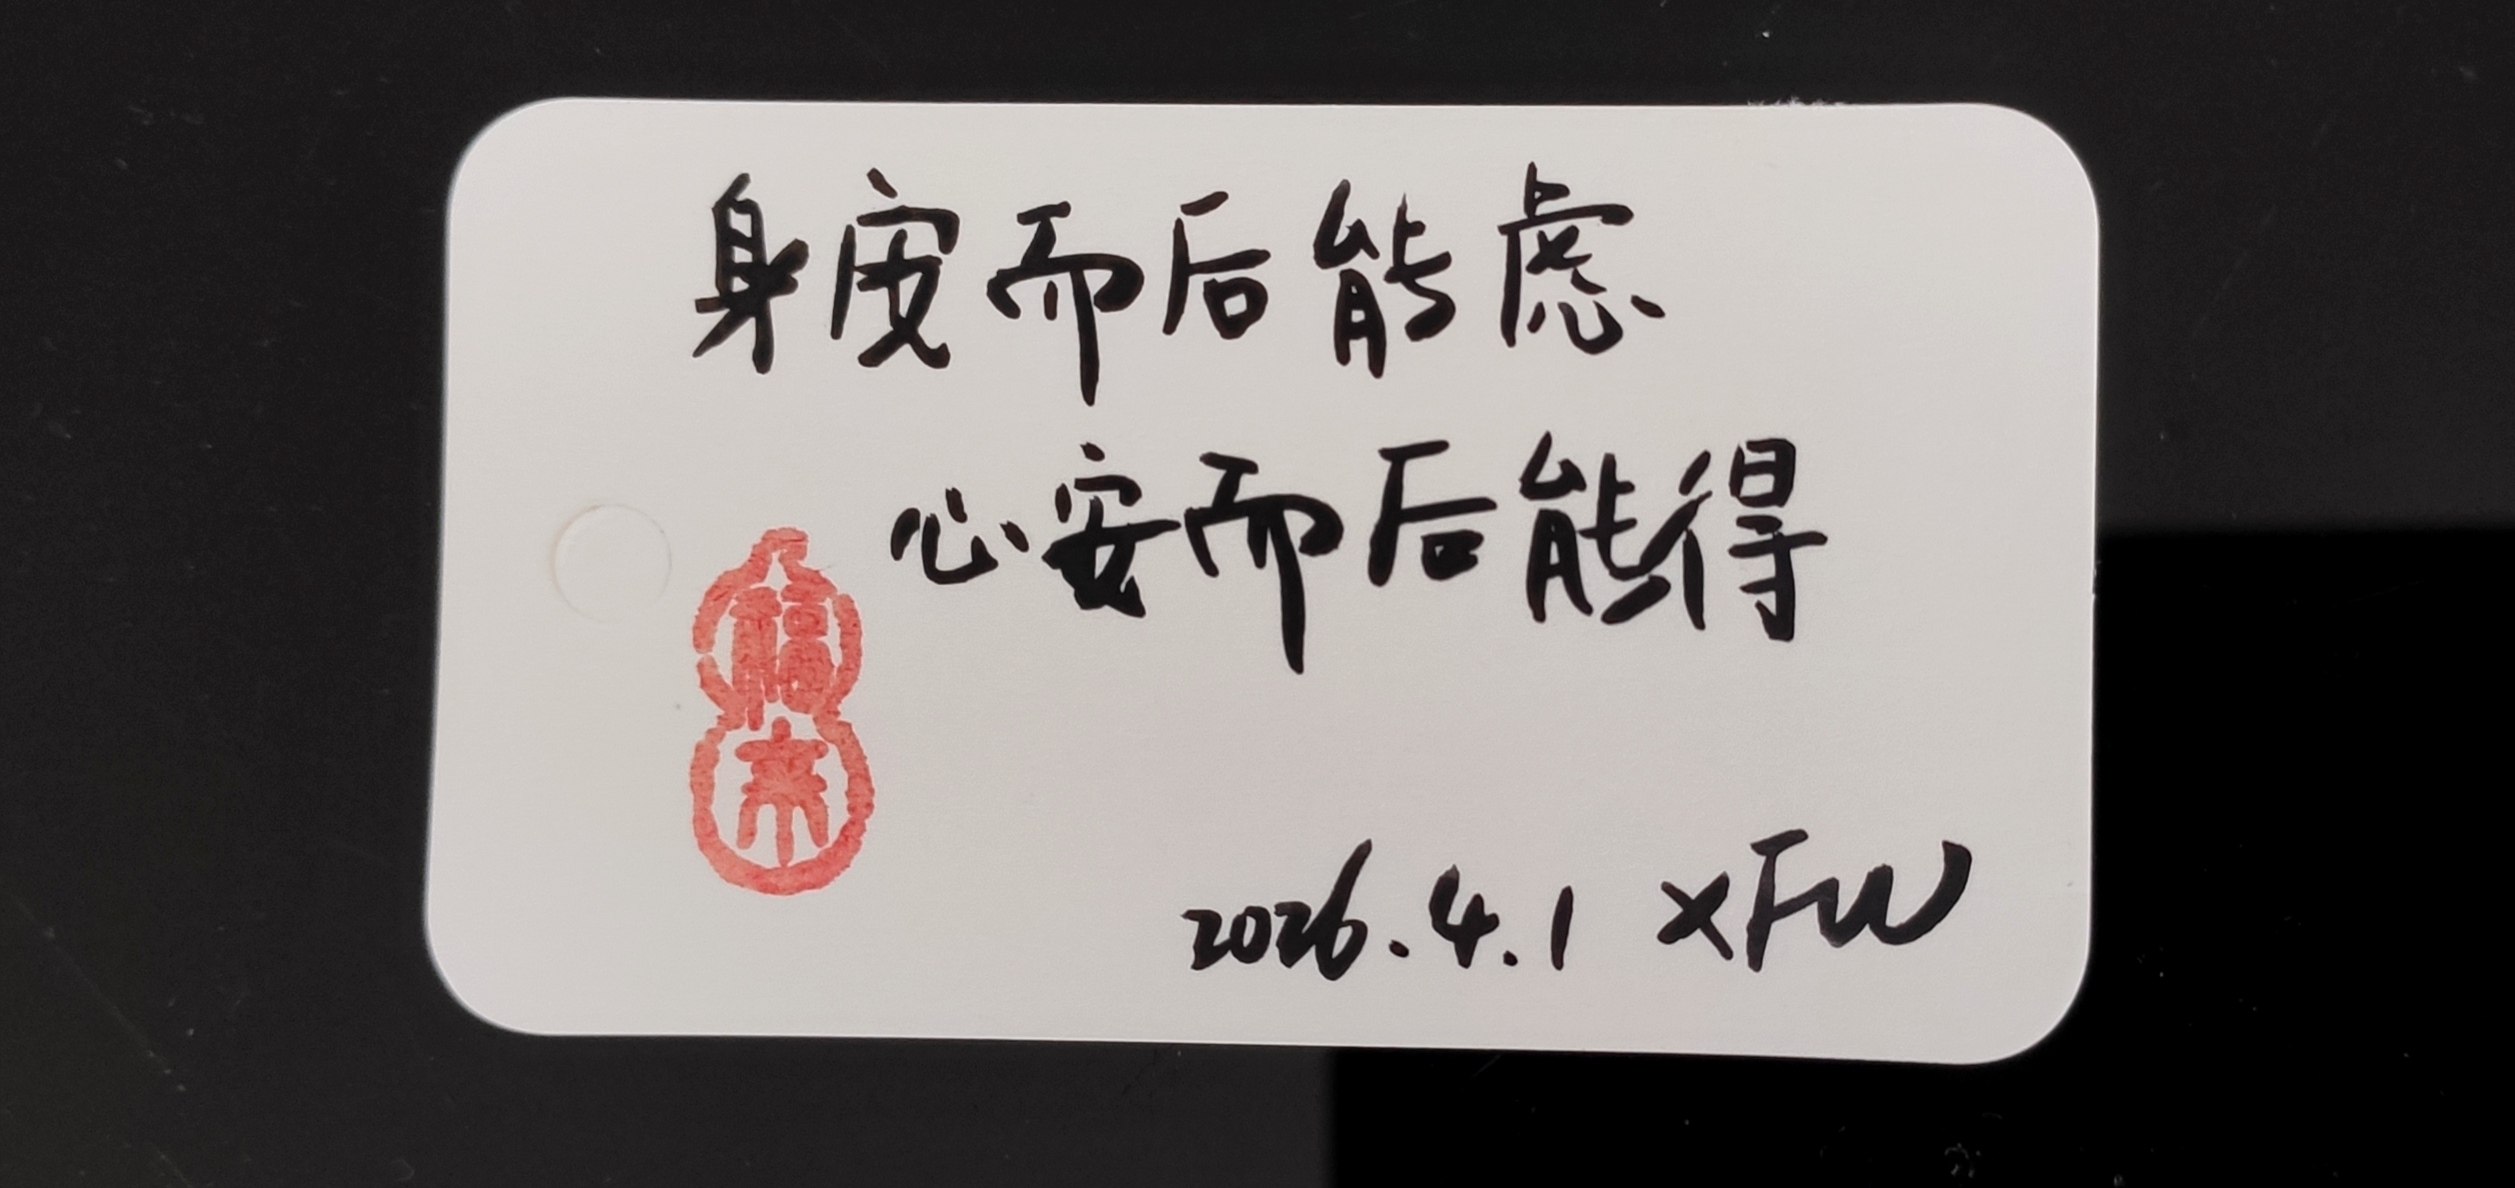 身而后能虑
心安而后能得
福
来
2026.4.1 XFW